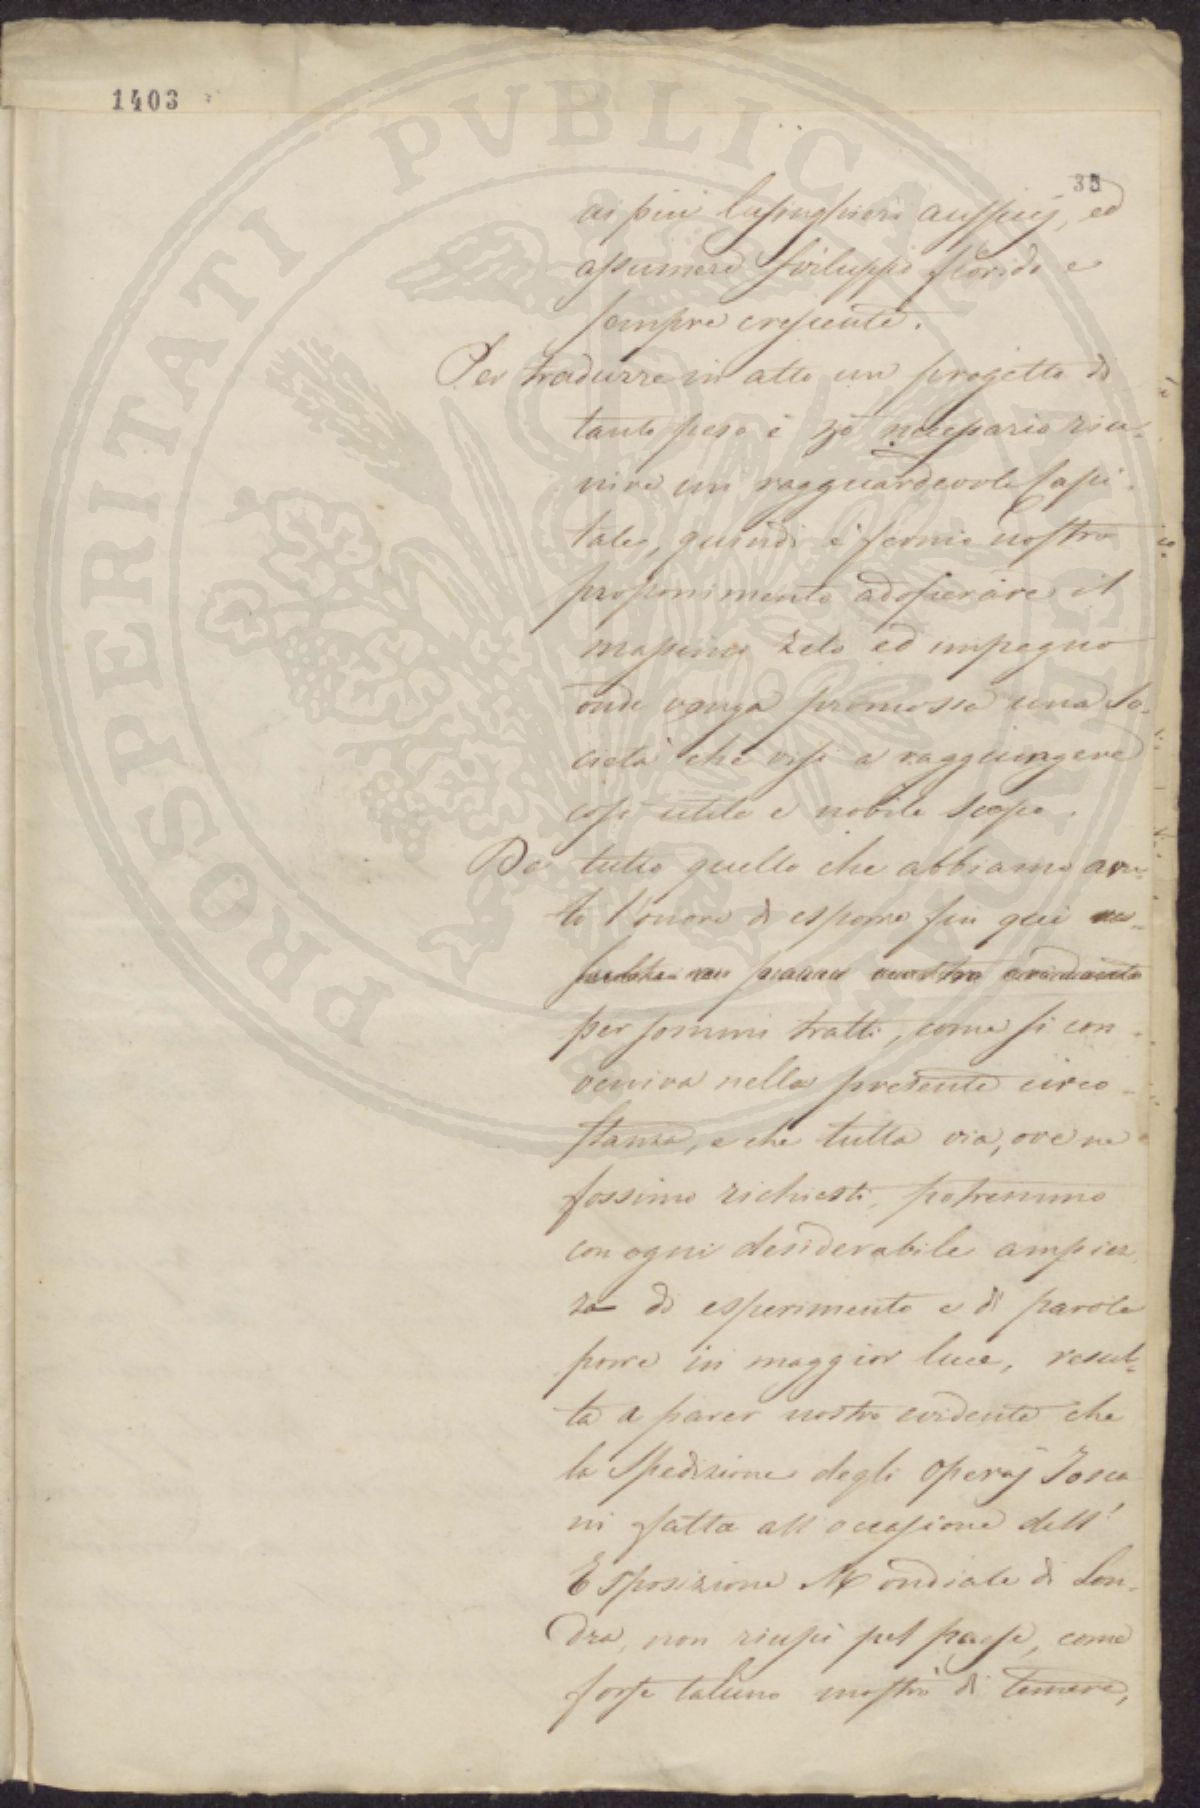 1403
35
ai più lusinghieri auspicj, ed
assumere sviluppo florido e
sempre crescente.
Per tradurre in atto un progetto di
tanto peso è necessario riu-
nire un ragguardevole Capi-
tale, quindi è fermo nostro
proponimento adoperare il
massimo zelo ed impegno
onde venga promossa una So-
cietà che visi a raggiungere
così utile e nobile scopo.
Da tutto quello che abbiamo avu-
to l'onore di esporre fin qui
per sommi tratti, come si con-
veniva nella presente circo-
stanza, e che tutta via, ove ne
fossimo richiesti, potremmo
con ogni desiderabile ampiez
za di esperimento e di parole
porre in maggior luce, resul-
ta a parer nostro evidente che
la Spedizione degli Operaj Tosca
ni fatta all'occasione dell'
Esposizione Mondiale di Lon-
dra, non riuscì pel paese, come
forse taluno mostrò di temere,
PROSPERITATI PVBLICAE